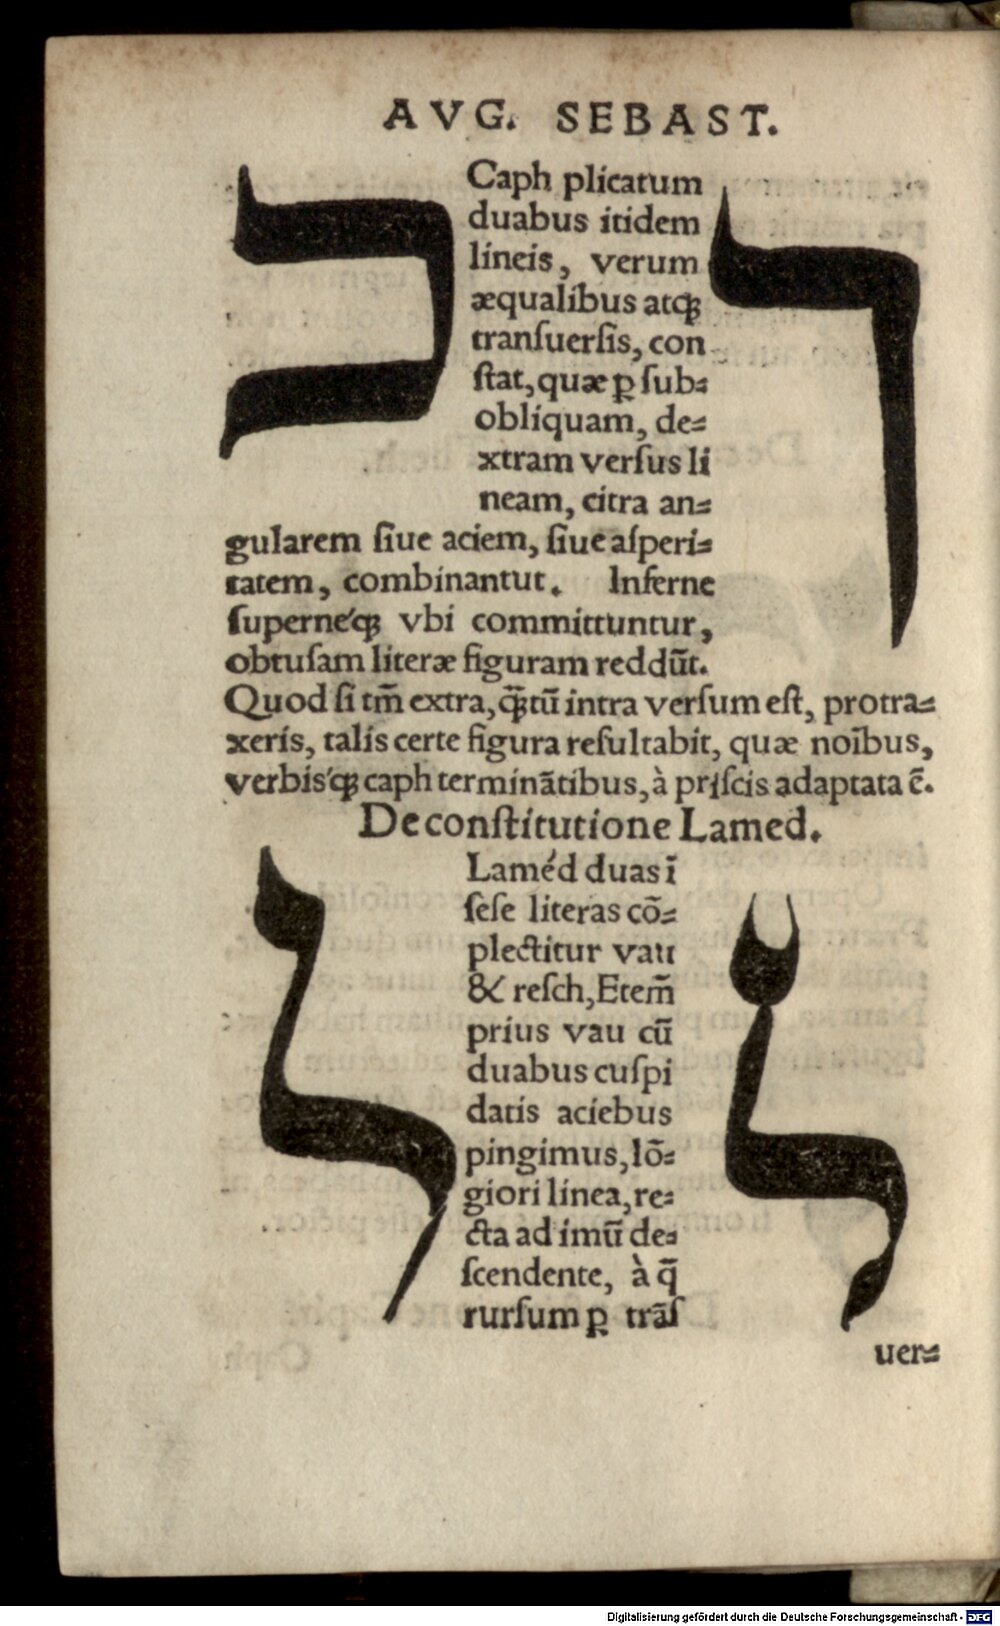 AVG. SEBAST.
כ
ך
Caph plicatum
duabus itidem
lineis, verum
æqualibus atqꝫ
tranſuerſis, con
ſtat, quæ ꝑ ſub⸗
obliquam, de⸗
xtram verſus li
neam, citra an⸗
gularem ſiue aciem, ſiue aſperi⸗
tatem, combinantut. Inferne
ſuperne'qꝫ vbi committuntur,
obtuſam literæ figuram reddūt.
Quod ſi tm̄ extra, qꝫ̄tū intra verſum eſt, protra⸗
xeris, talis certe figura reſultabit, quæ noībus,
verbis'qꝫ caph terminātibus, à priſcis adaptata ē.
De conſtitutione Lamed.
ל
ל
Laméd duas ī
ſeſe literas cō⸗
plectitur vau
& reſch, Etem̄
prius vau cū
duabus cuſpi
datis aciebus
pingimus, lō⸗
giori linea, re⸗
cta ad imū de⸗
ſcendente, à q̄
rurſum ꝑ trāſ
uer⸗
Digitalisierung gefördert durch die Deutsche Forschungsgemeinschaft - DFG